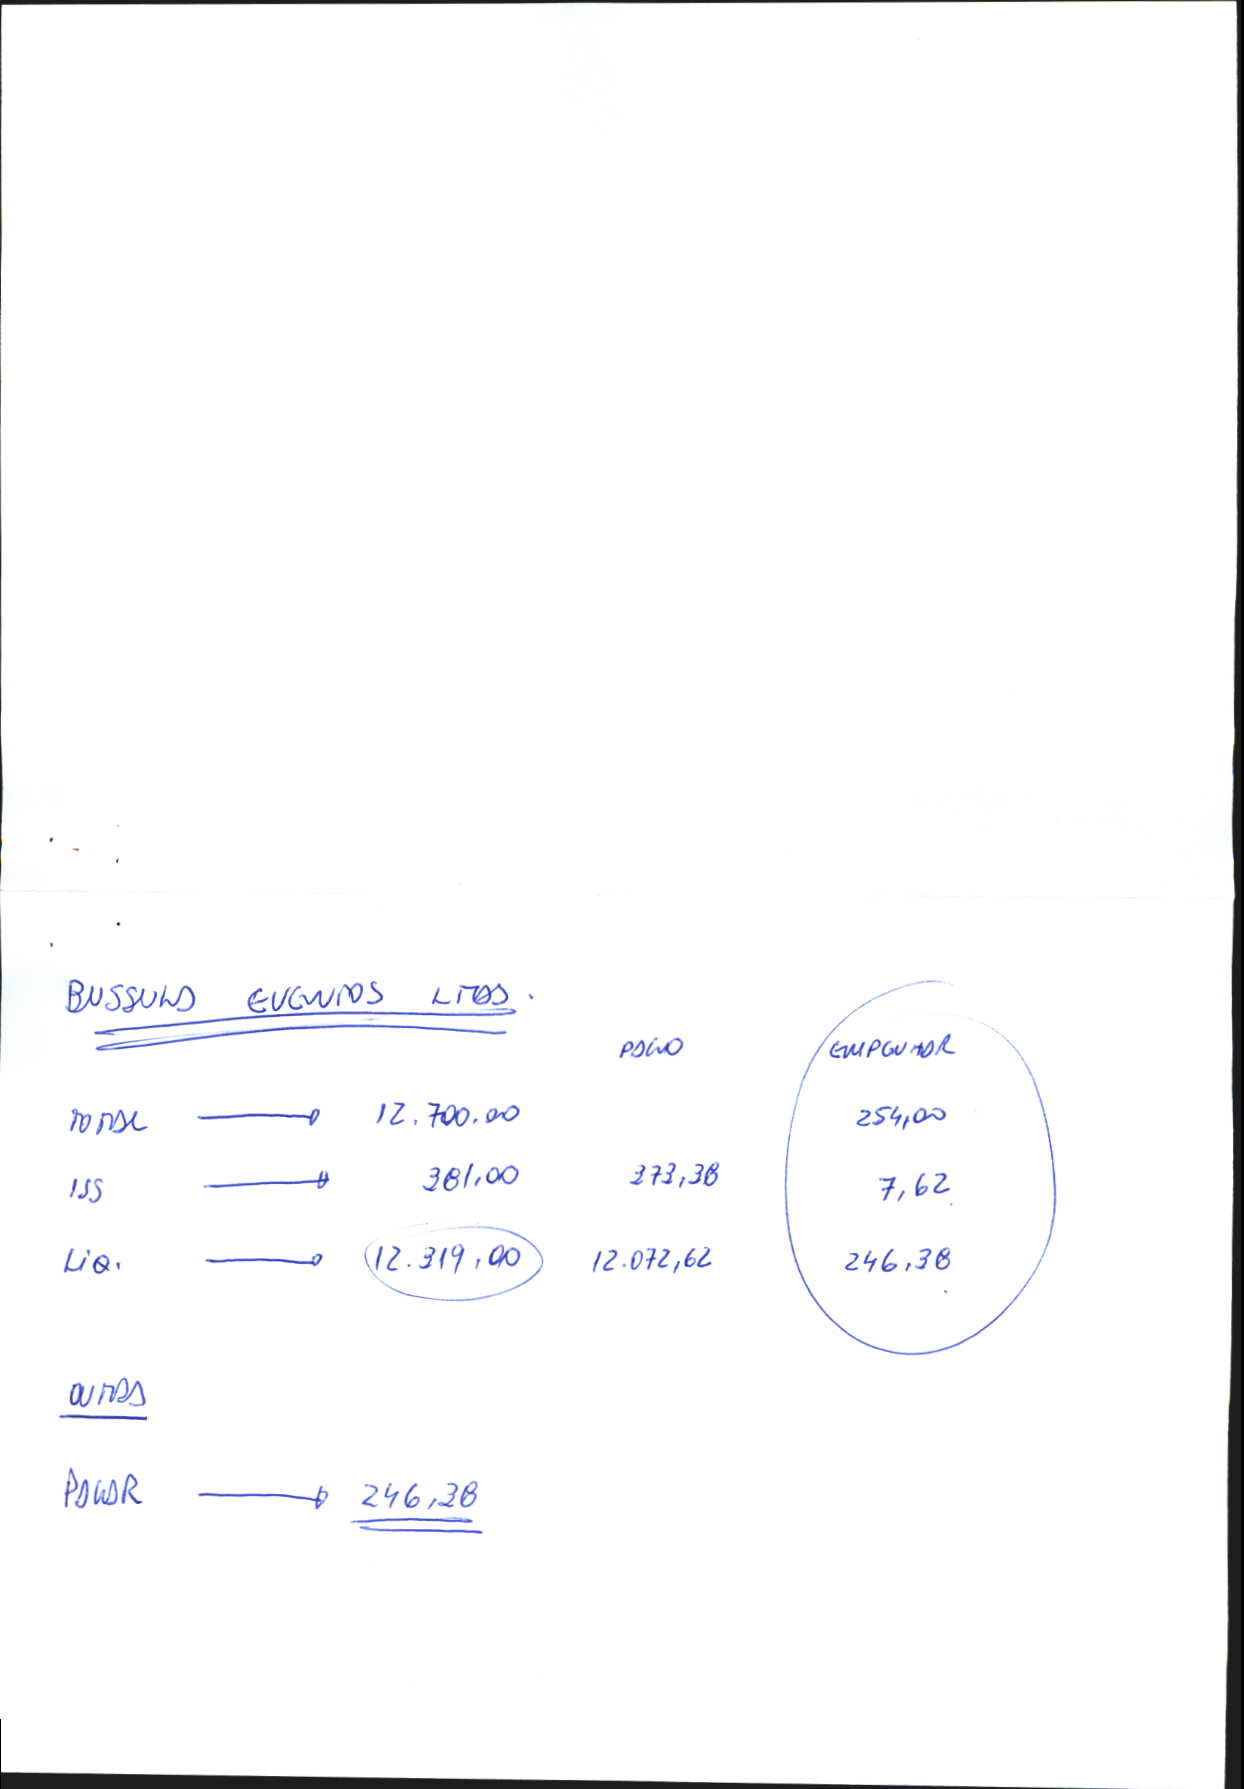 BUSSULA EVENTOS LTDA.
PAGO EMPENHAR
TOTAL 12.700,00 254,00
ISS 381,00 373,38 7,62
Liq. 12.319,00 12.072,62 246,38
PAGAR 246,38